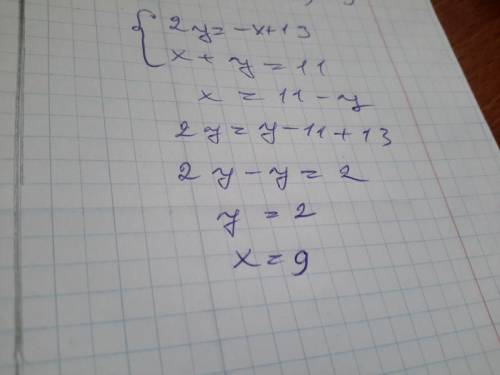 { 2y = -x+13
x + y = 11
x = 11 - y
2y = y - 11 + 13
2y - y = 2
y = 2
x = 9